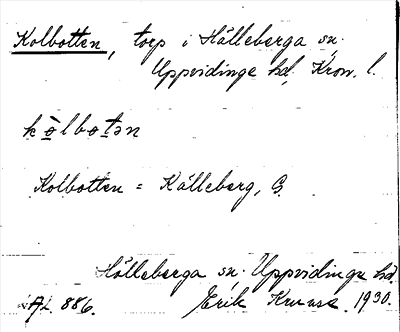 Kolbotten, torp i Hälleberga sn.
Uppvidinge hd, Kron. l.
kòlbotən
Kolbotten = Källeberg, G.
Hälleberga sn. Uppvidinge hd.
AL. 886. Erik 1930.